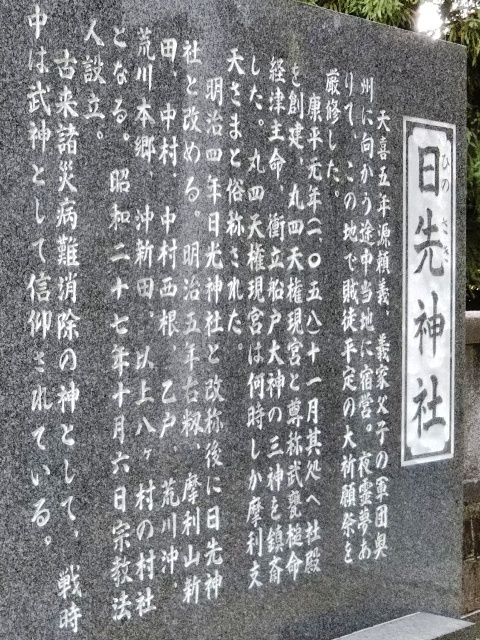 日先神社
ひのさき
天喜五年源頼義、義家父子の軍団奥
州に向かう途中当地に宿営。夜霊夢あ
りて、この地で賊徒平定の大祈願祭を
厳修した。
康平元年(一、〇五八)十一月其処へ社殿
を創建、丸四天権現宮と尊称武甕槌命
経津主命、衝立船戸大神の三神を鎮斎
した。丸四天権現宮は何時しか摩利支
天さまと俗称された。
明治四年日光神社と改称後に日先神
社と改める。明治五年右籾、摩利山新
田、中村、中村西根、乙戸、荒川沖、
荒川本郷、沖新田、以上八ヶ村の村社
となる。昭和二十七年十月六日宗教法
人設立。
古来諸災病難消除の神として、戦時
中は武神として信仰されている。